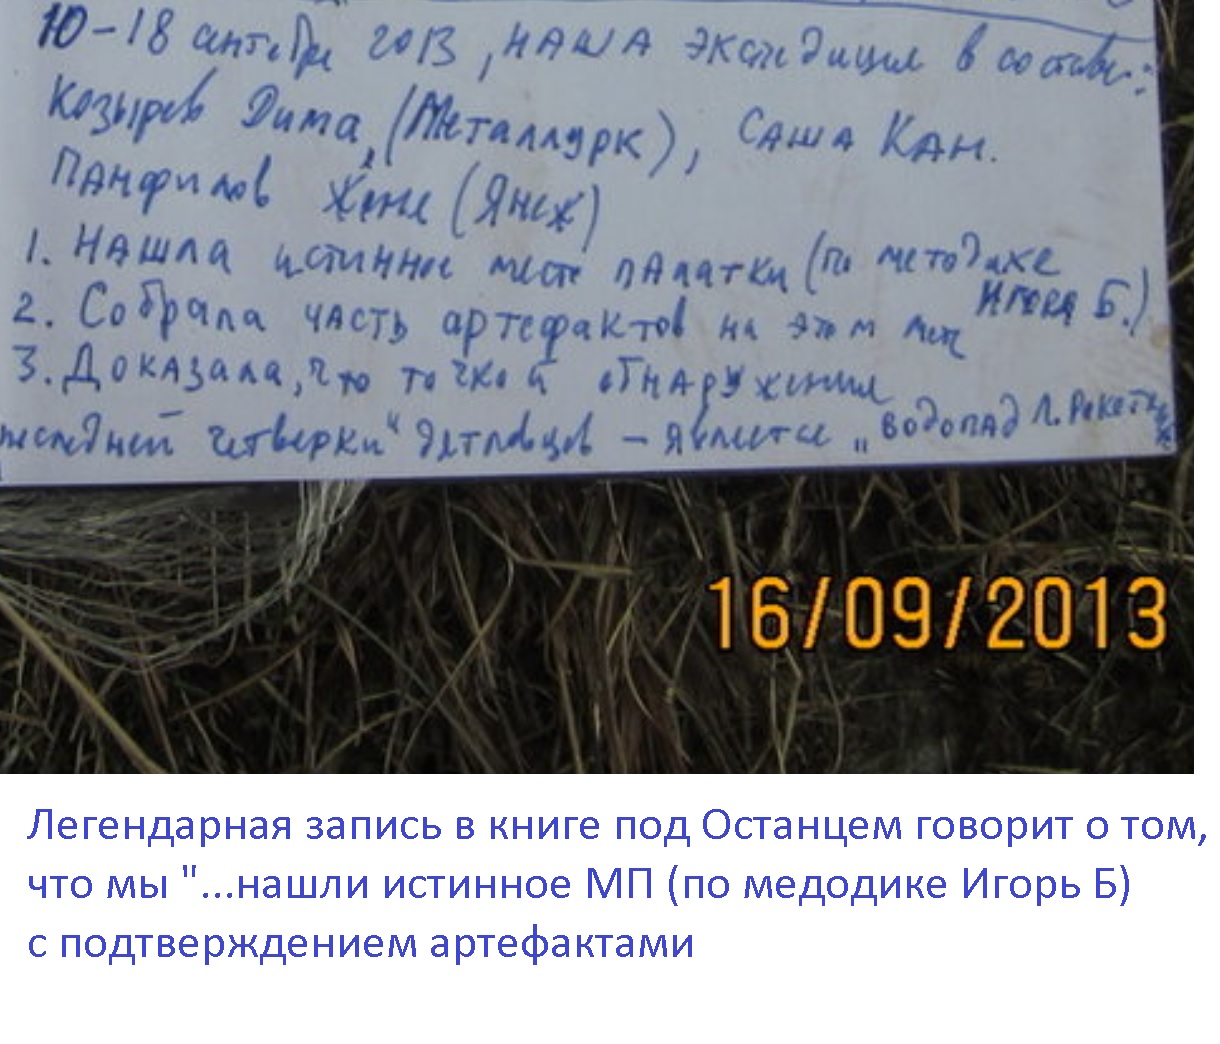 10-18 сентября 2013, наша экспедиция в составе:
Козырев Дима, (Металлурк), Саша Кан.
Панфилов Женя (Янеж)
1. Нашла истинное место палатки (по методике
Игоря Б.)
2. Собрала часть артефактов на этом месте
3. Доказала, что точкой обнаружения
последней четверки" Дятловцев - является "водопад Л.
16/09/2013
Легендарная запись в книге под Останцем говорит о том,
что мы "...нашли истинное МП (по медодике Игорь Б)
с подтверждением артефактами